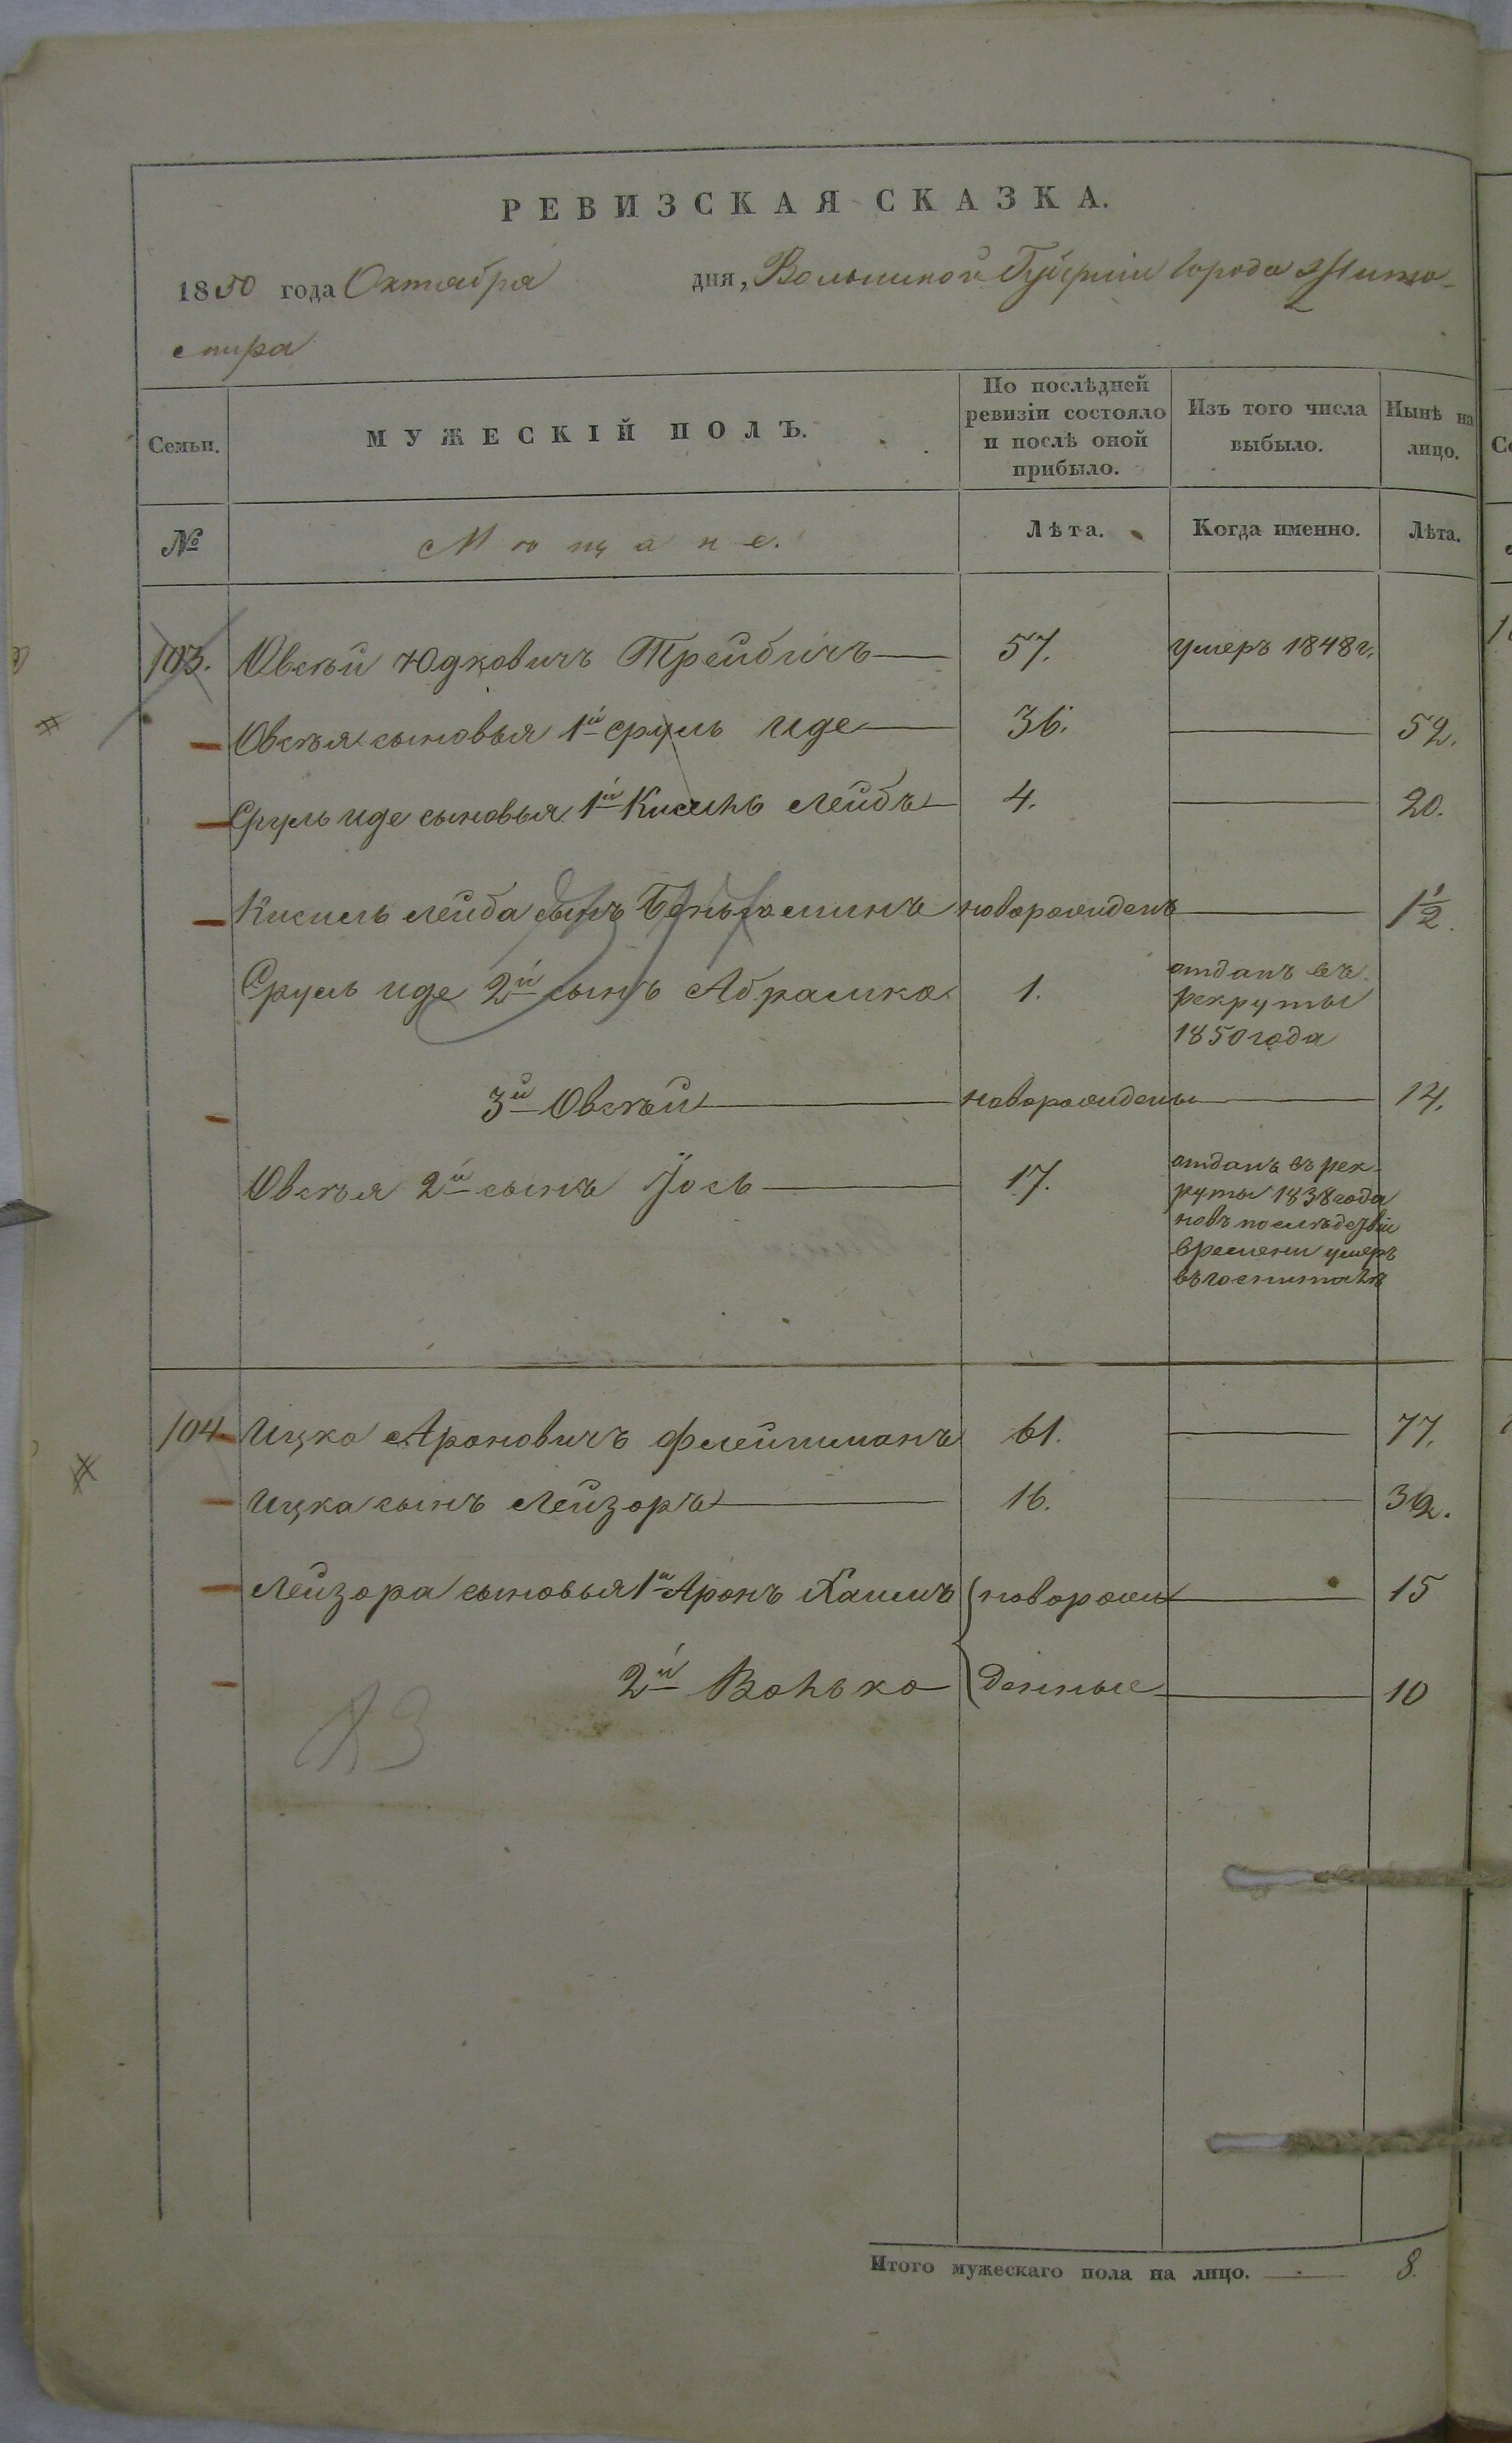 РЕВИЗСКАЯ СКАЗКА.
1850 года Октября дня, Волынской Губерніи Города Жито-
мира
Семьи. МУЖЕСКІЙ ПОЛЪ. По послѣдней ревизіи состояло и послѣ оной прибыло. Изъ того числа выбыло. Нынѣ на лицо.
№ Мѣщане. Лѣта. Когда именно. Лѣта.
103. Овсѣй Юдковичъ Трейбичъ 57. умеръ 1848 г.
Овсѣя сыновья 1й Сруль Иде 36. 52.
Сруль Иде сыновья 1й Кисель Лейбъ 4. 20.
Кисиль Лейба сынъ Беньюминъ новорожденъ 1½.
Сруль Иде 2й сынъ Абрамко 1. отданъ въ
рекруты
1850 года
3й Овсѣй новорожденъ 14.
Овсѣя 2й сынъ Іось 17. отданъ въ рек-
руты 1838 года
времени умеръ
въ госпиталѣ
104 Ицко Ароновичъ Флейшманъ 61. 77.
Ицка сынъ Лейзоръ 16. 32.
Лейзора сыновья 1й Аронъ Хаимъ новорож 15
2й Волько денные 10
Итого мужескаго пола на лицо. 8.